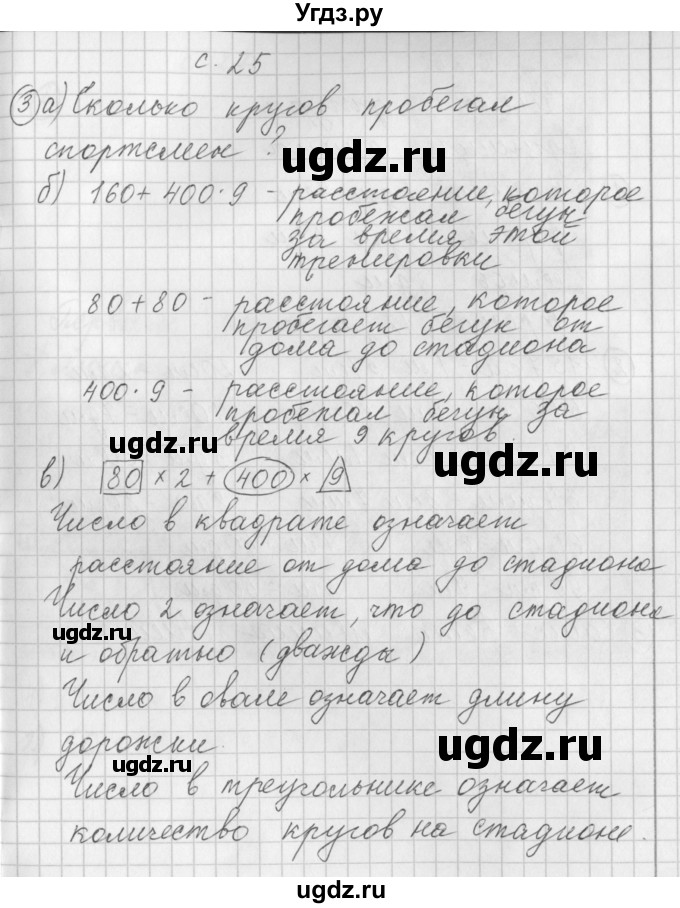 Угдз.ру
с. 25
③ а) Сколько кругов пробегал
спортсмен ?
ugdz.ru
б) 160 + 400 · 9 - расстояние, которое
пробежал бегун
за время этой
тренировки
80 + 80 - расстояние, которое
пробегает бегун от
дома до стадиона
400 · 9 - расстояние, которое
пробежал бегун за
время 9 кругов.
ugdz.ru
в) 80 × 2 + 400 × 9
Число в квадрате означает
расстояние от дома до стадиона
Число 2 означает, что до стадиона
ugdz.ru
и обратно (дважды)
Число в овале означает длину
дорожки.
ugdz.ru
ugdz.ru
Число в треугольнике означает
количество кругов на стадионе.
ugdz.ru